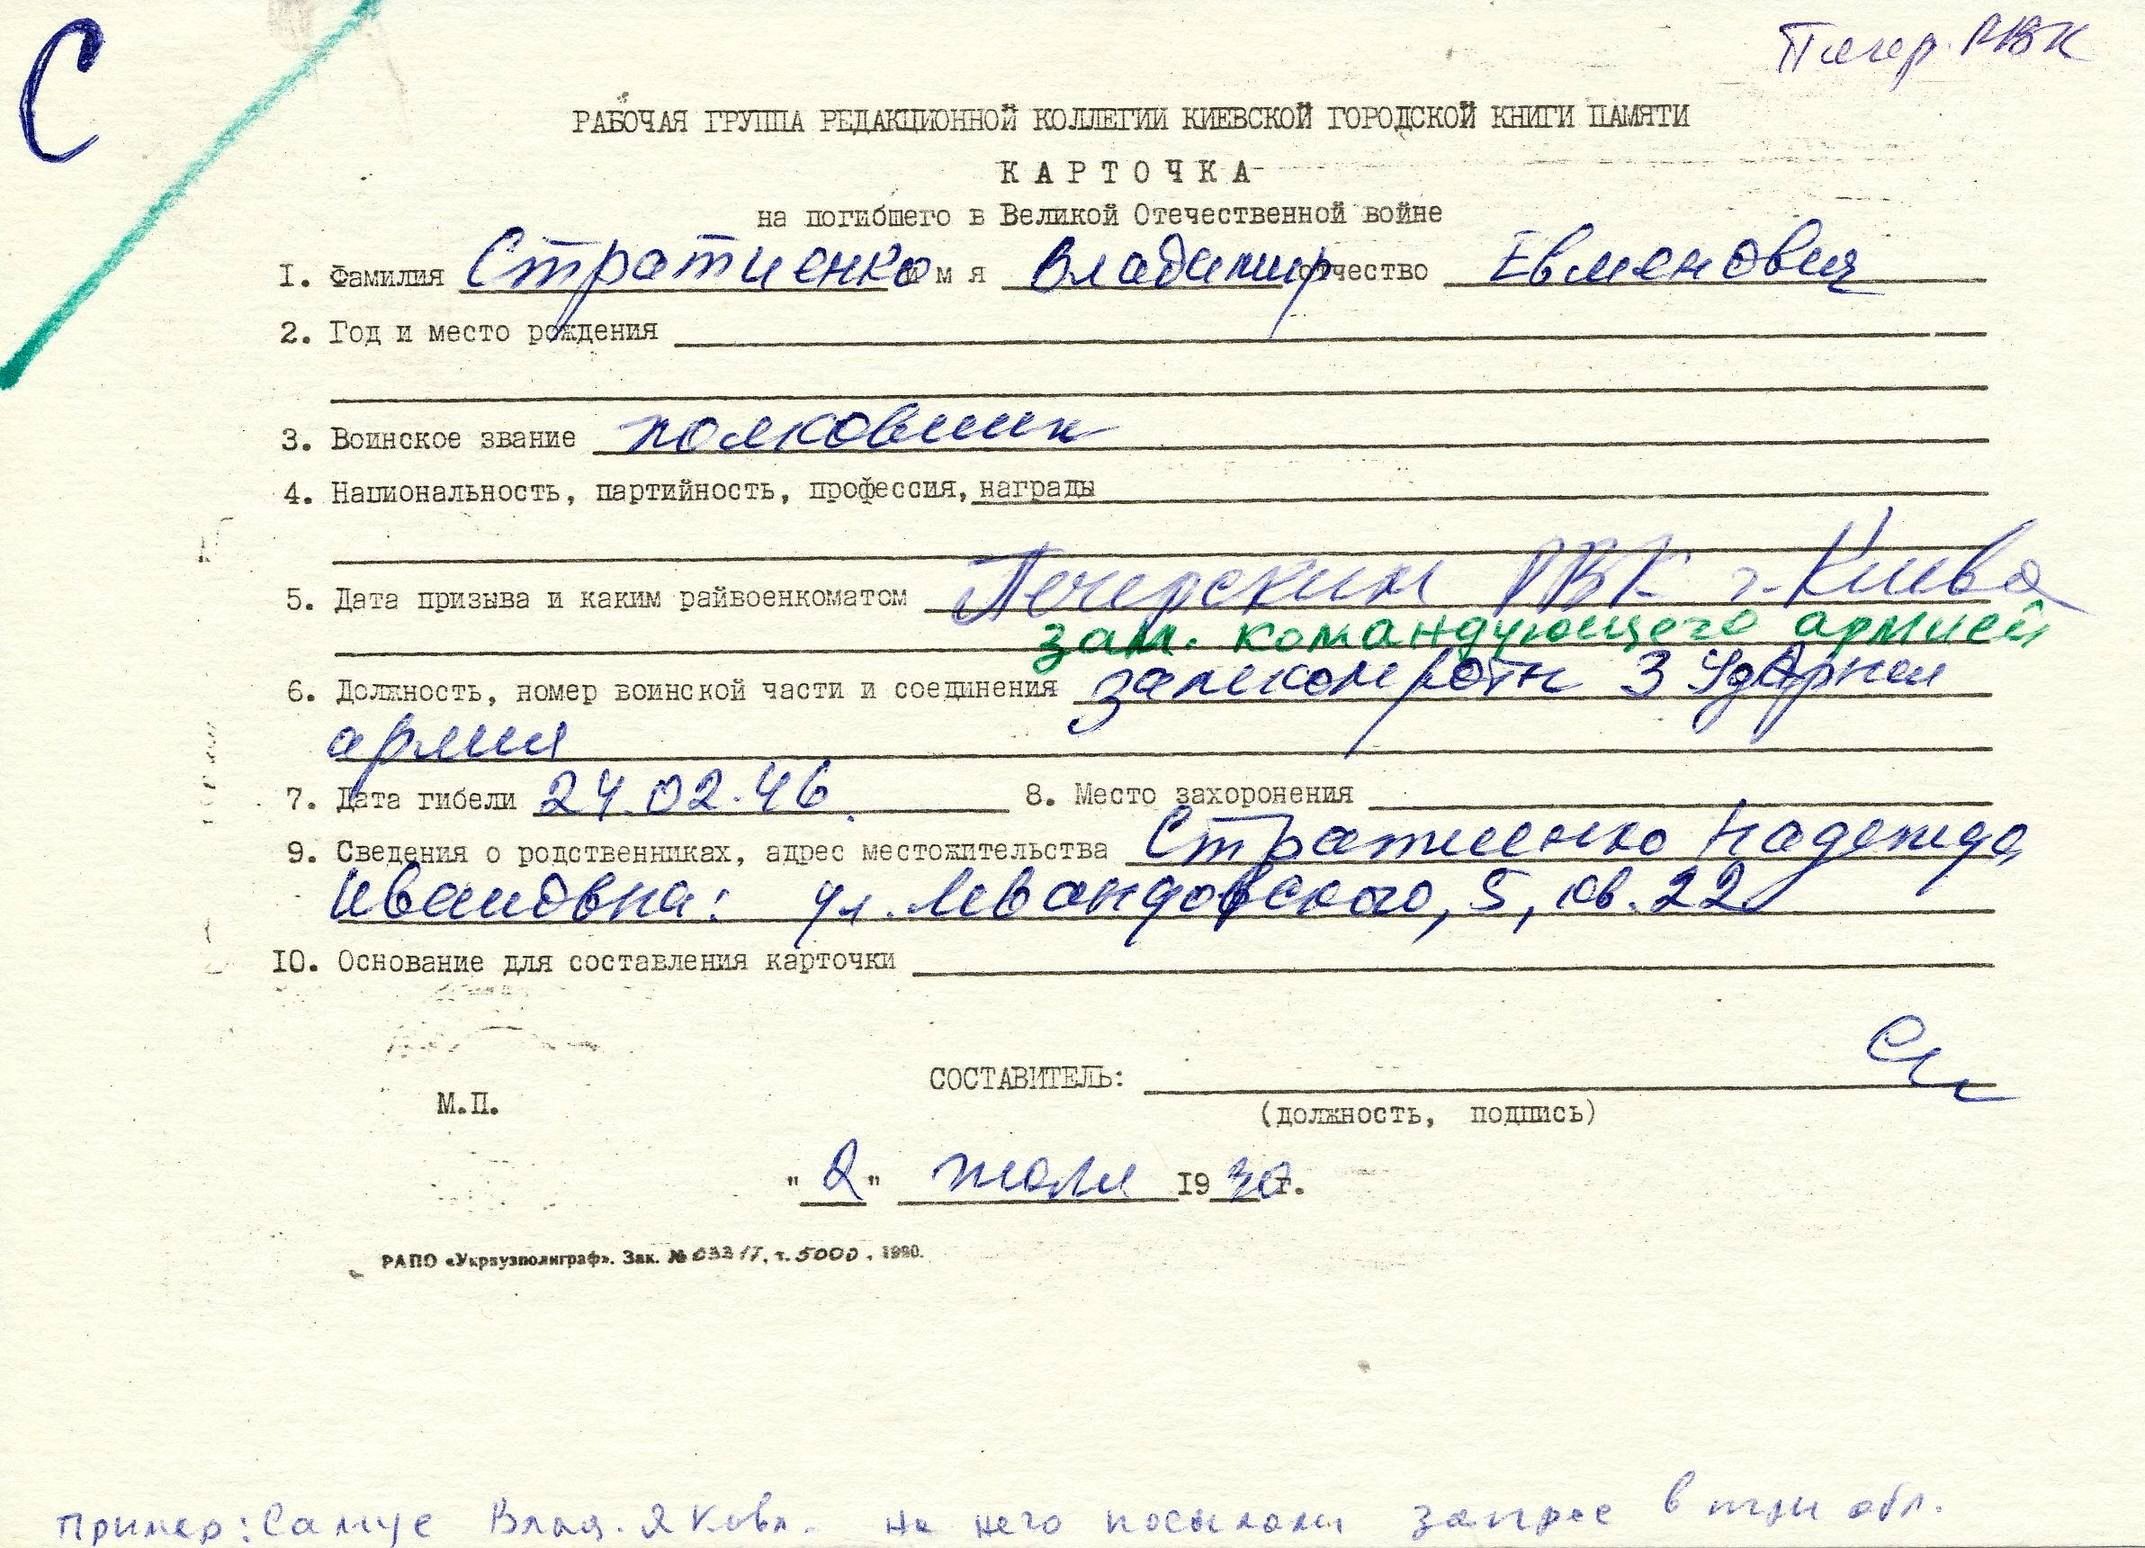 С
Печер. РВК
РАБОЧАЯ ГРУППА РЕДАКЦИОННОЙ КОЛЛЕГИИ КИЕВСКОЙ ГОРОДСКОЙ КНИГИ ПАМЯТИ
КАРТОЧКА
на погибшего в Великой Отечественной войне
1. Фамилия Стратиенко имя Владимир отчество Евменович
2. Год и место рождения
3. Воинское звание полковник
4. Национальность, партийность, профессия, награды
5. Дата призыва и каким райвоенкоматом Печерским РВК г. Киева
зам. командующего армией
6. Должность, номер воинской части и соединения 3 Ударная
армия
7. Дата гибели 24.02.46. 8. Место захоронения
9. Сведения о родственниках, адрес местожительства Стратиенко Надежда
Ивановна: ул. Левандовского, 5, кв. 22
10. Основание для составления карточки
СОСТАВИТЕЛЬ:
М.П.
(должность, подпись)
"2" июля 1990г.
РАПО «Укрвузполиграф». Зак. № т. 5000, 1990.
пример: Самус Влад. Яковл. на него посылали запрос в три обл.